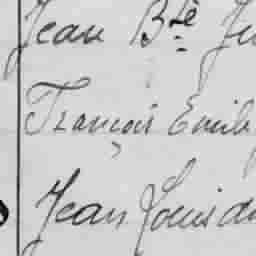 Jean Bte Ju
François Emile
Jean Louis de